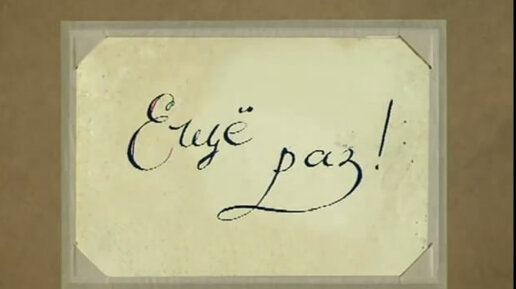 Ещё раз!